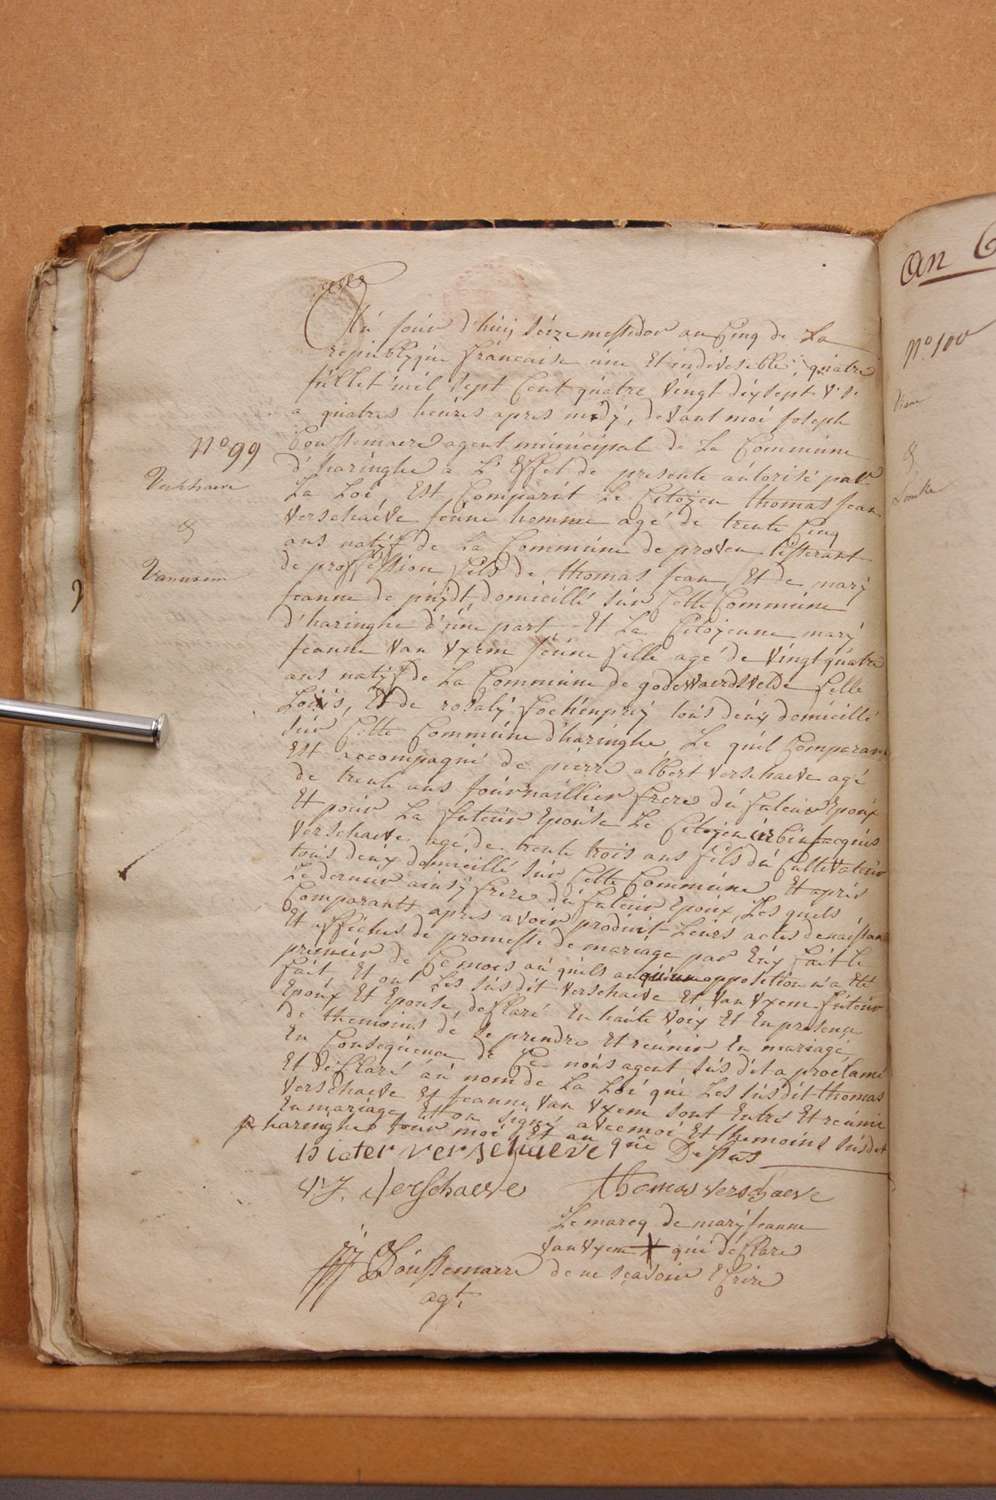 Cú joúr d'húij Séize messidor an Cinq de La
républyqúe francaise úne Et indivesible, qúatre
júillet mil sept Cent qúatre vingt dix sept v. s.
a qúatres heúres apres midÿ, devant moi Joseph
Coússemaere agent múnicipal de La Commúne
N° 99
d'haringhe a L'Effet de presente aútorisé par
Verschaeve
La Loi, Est Comparút Le Citoÿen thomas Jean
&
Verschaeve jeúne homme agé de trente Cinq
ans natif de La Commúne de proven tisserant
Vanuxem
de proffession fils de thomas Jean Et de marÿ
jeanne de púijdt domicillié súr Cette Commúne
d'haringhe d'úne part Et La Citoÿenne marÿ
jeanne Van Uxem jeúne fille agé de vingt qúatre
ans natif de La Commúne de godewaersvelde fille
Loúis, Et de rosalÿ toús deúx domicillié
súr Cette Commúne d'haringhe, Le qúel Comparant
Est accompagné de pierre albert verschaeve agé
de trente ans joúrnaillier frere dú fúteúr Epoúx
Et poúr La fúteúr Epoúse Le Citoÿen úrbin jacqúes
Verschaeve agé de trente trois ans fils dú Cúltivateúr
toús deúx domicillié súr Cette Commúne Et aprés
Le dernier ainsÿ frere dú fúteúr Epoúx, Les qúels
Comparants aprés avoir prodúit Leúrs actes de naissance
Et affiches de promesse de mariage par Eúx fait Le
premier de Ce mois aú qúels aúqúúne opposition n'a Eté
fait, Et ont Les súsdit verschaeve Et Van Uxem fúteúr
Epoúx Et Epoúse deClaré En haúte voix Et En presence
de themoins de se prendre Et reúnir En mariage
En Conseqúence de Ce noús agent súsdit a proclamé
Et déClaré aú nom de La Loi qúe Les súsdit thomas
Verschaeve Et jeanne Van Uxem sont Entre Et reúnie
En mariage, Et on signé avec moi Et themoins súsdit
haringhe joúr moi Et an qúe Dessús
Pieter verschaeve
V. J. Verschaeve thomas verschaeve
Le marcq de marÿ jeanne
Van Uxem X qúi deClare
J Coússemaere de ne sçavoir ECrire
agt.
An
N° 100
&